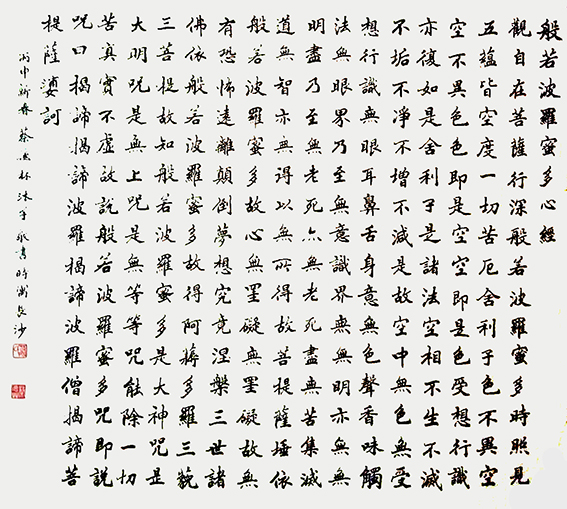 般若波羅蜜多心經
觀自在菩薩行深般若波羅蜜多時照見
五蘊皆空度一切苦厄舍利子色不異空
空不異色色即是空空即是色受想行識
亦復如是舍利子是諸法空相不生不滅
不垢不淨不增不減是故空中無色無受
想行識無眼耳鼻舌身意無色聲香味觸
法無眼界乃至無意識界無無明亦無無
明盡乃至無老死亦無老死盡無苦集滅
道無智亦無得以無所得故菩提薩埵依
般若波羅蜜多故心無罣礙無罣礙故無
有恐怖遠離顛倒夢想究竟涅槃三世諸
佛依般若波羅蜜多故得阿耨多羅三藐
三菩提故知般若波羅蜜多是大神咒是
大明咒是無上咒是無等等咒能除一切
苦真實不虛故說般若波羅蜜多咒即說
咒曰揭諦揭諦波羅揭諦波羅僧揭諦菩
提薩婆訶
丙申新春蔡林沐手敬書時沙